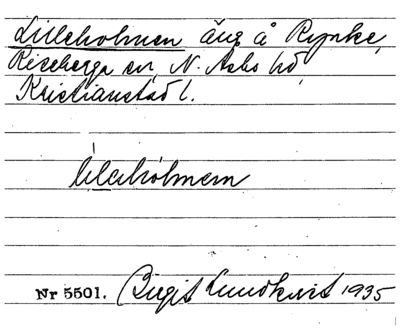 Lilleholmen äng å Rynke,
Riseberga sn, N. Åsbo hd
Kristianstad l.
lilleholmem
Nr 5501. Birgit Lundkvist 1935